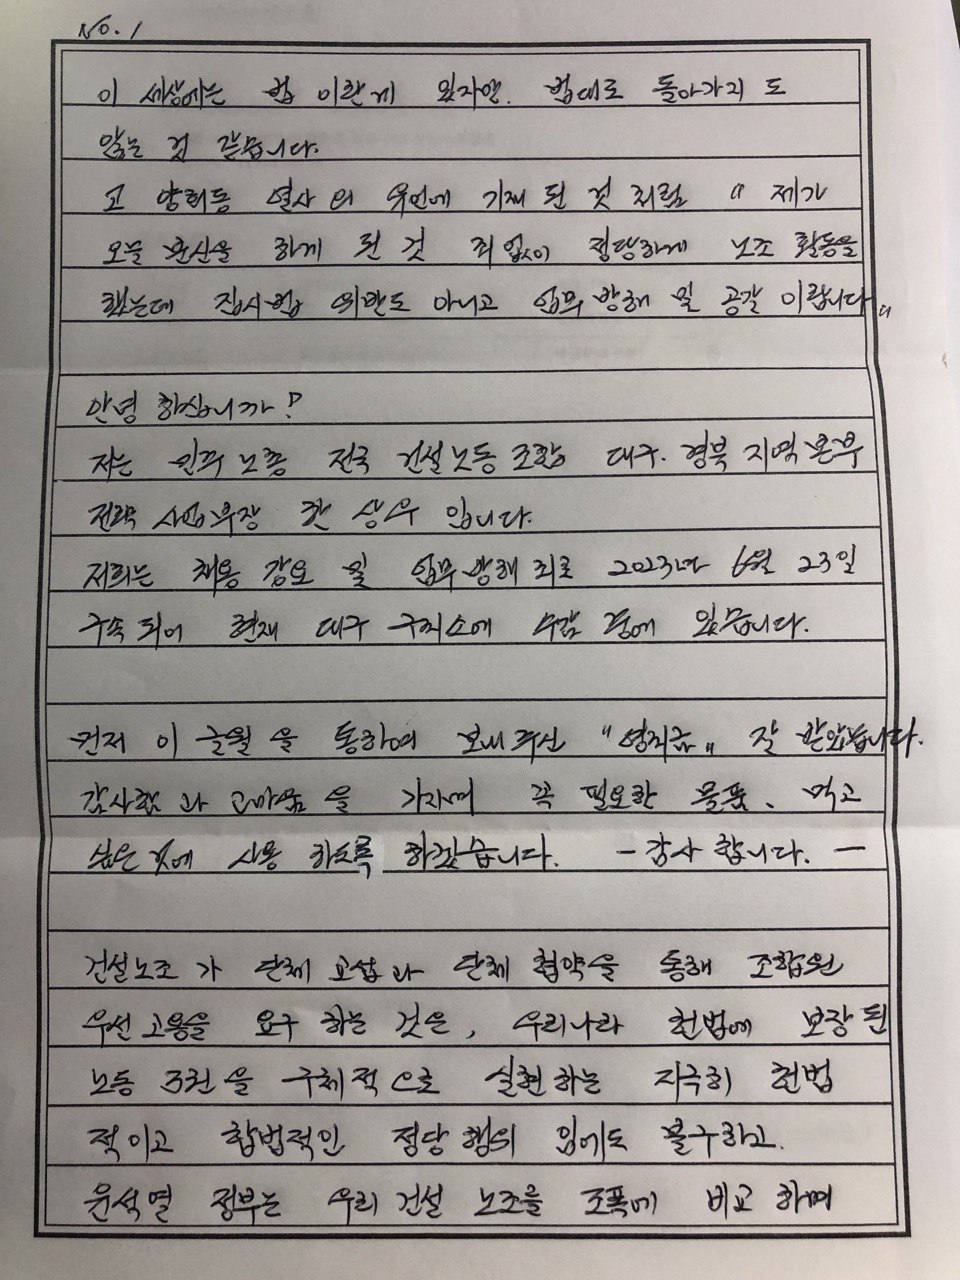 No. 1
이 세상에는 법 이란게 있지만. 법대로 돌아가지 도
않는 것 같습니다.
고 양회동 열사 의 유언에 기재 된 것 처럼 " 제가
오늘 분신을 하게 된 것 죄 없이 정당하게 노조 활동을
했는데 집시법 위반도 아니고 업무 방해 및 공갈 이랍니다"
안녕 하십니까?
저는 민주노총 전국 건설노동 조합 대구.경북 지역 본부
전략 사업부장 상우 입니다.
저희는 채용 강요 및 업무 방해 죄로 2023년 6월 23일
구속 되어 현재 대구 구치소에 수감 중에 있습니다.
먼저 이 글월 을 통하여 보내 주신 "영치금" 잘 받았습니다.
감사함 과 고마움 을 가지며 꼭 필요한 물품, 먹고
싶은 것에 사용 하도록 하겠습니다. - 감사 합니다. -
건설노조 가 단체 교섭 과 단체 협약을 통해 조합원
우선 고용을 요구 하는 것은, 우리나라 헌법에 보장 된
노동 3권 을 구체적 으로 실현하는 지극히 헌법
적이고 합법적인 정당 행의 임에도 불구하고.
윤석열 정부는 우리 건설 노조를 조폭에 비교 하며